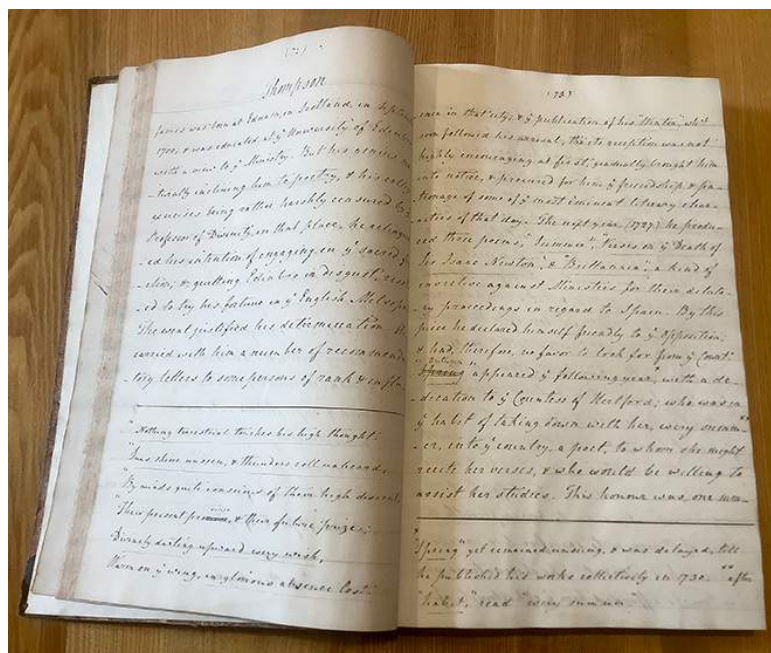 (72)
Thompson
James was born at Ednam, in Scotland, in Septem
1700, & was educated at yͤ University of Edinbur
with a view to yͤ Ministry. But his genius na
turally inclining him to poetry, & his colle
exercises being rather harshly censured by
Professor of Divinity in that place, he relinquis
-ed his intention of engaging in yͤ sacred f
-ction; & quitting Edinbro in disgust, reso
-ed to try his fortune in yͤ English Metropo
The event justified his determination. H
carried with him a number of recommenda
-tory letters to some persons of rank & influ-
"Nothing terrestrial touches his high thought
"Suns shine unseen, & thunders roll unheard,
"By minds quite conscious of their high descent,
"Their present & their future prize;
Divinely darting upward every wish,
Warm on yͤ wing, in glorious absence lost."
(73)
ence in that city; & yͤ publication of his "Winter", which
soon followed his arrival, tho its reception was not
highly encouraging at first, gradually brought him
into notice, & procured for him yͤ friendship & pa-
tronage of some of yͤ most eminent literary char-
acters of that day. The next year (1727) he produ-
ced three poems, "Summer", Verses on yͤ Death of
Sir Isaac Newton", & "Brittannia", a kind of
invective against Ministers for their dilato-
ry proceedings in regard to Spain. By this
piece he declared himself friendly to yͤ Opposition,
& had, therefore, no favor to look for from yͤ Court.
"Autumn
"Spring" appeared yͤ following year, with a de-
-dication to yͤ Countess of Hertford; who was in
yͤ habit of taking down with her, every summ-**
-er, into yͤ country, a poet, to whom she might
recite her verses, & who would be willing to
assist her studies. This honour was, one sum-
*
"Spring" yet remained undone, & was delayed, till
he published his works collectively in 1730. ** after
"habit," read "every summer"